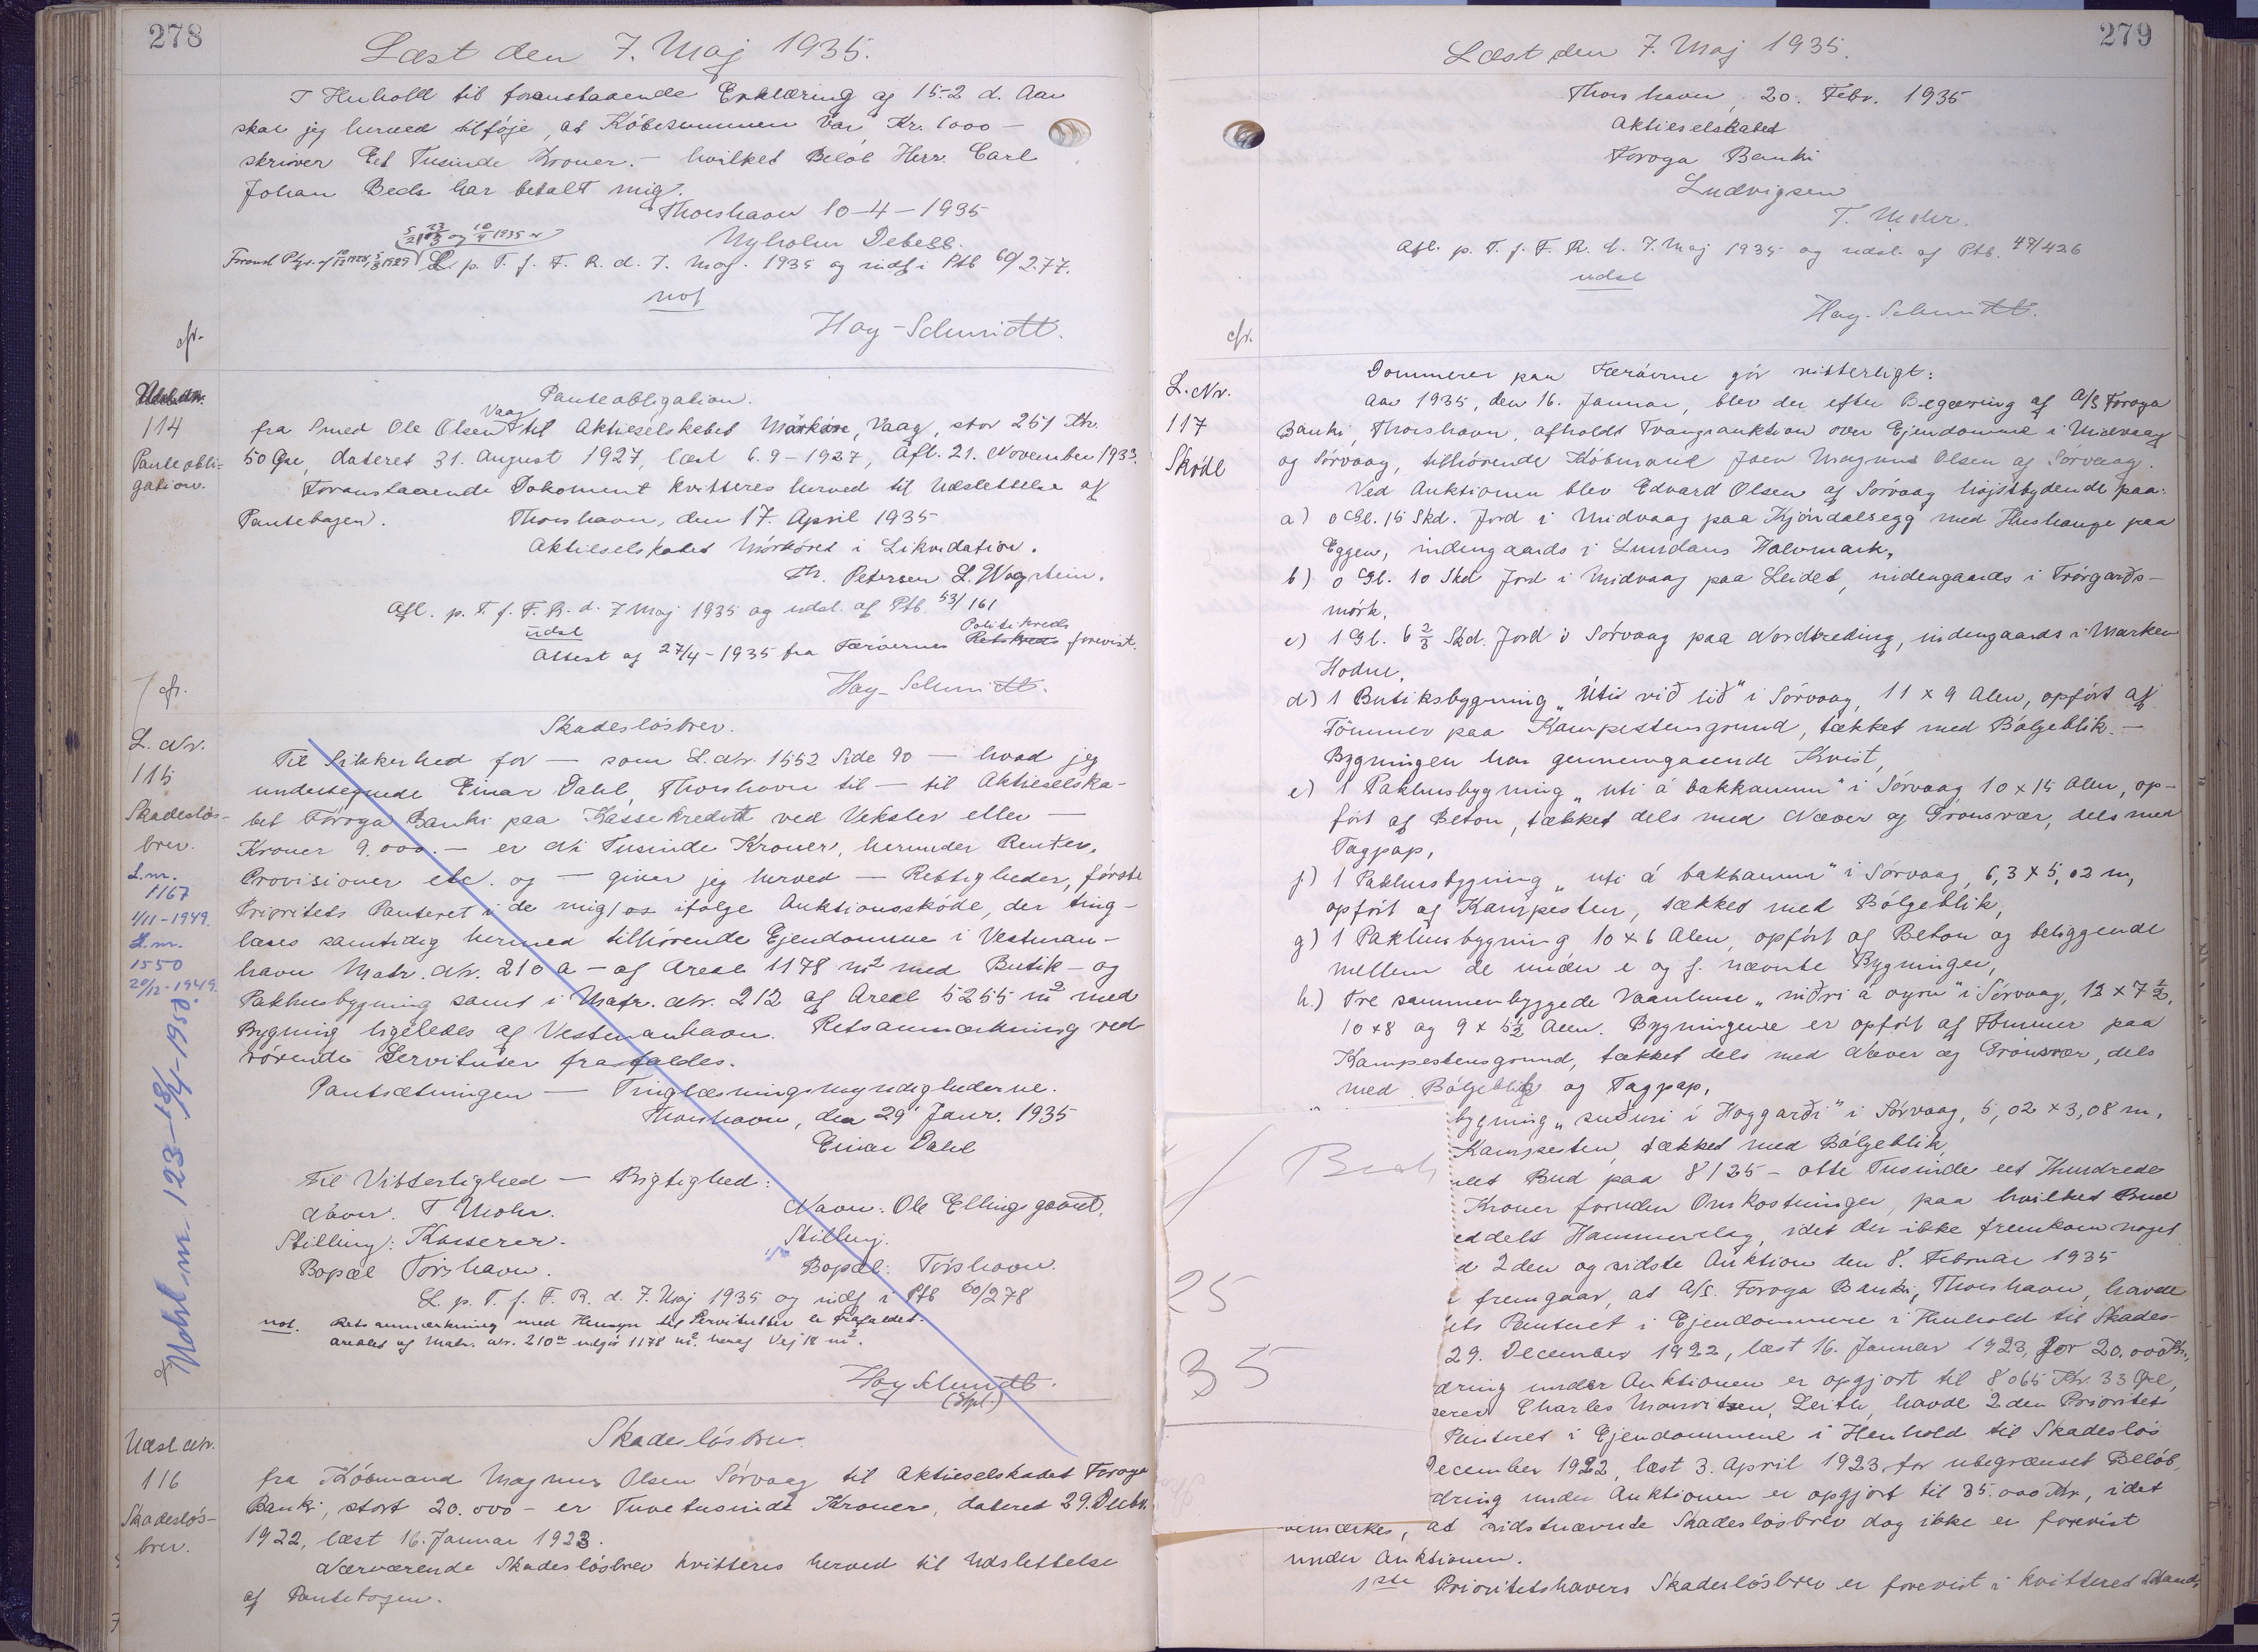 278
Læst den 7. Maj 1935.
I Henhold til foranstaaende Erklæring af 15-2 d. Aar
skal jeg herved tilføje, at Købesummen var Kr. 1000 -
skriver Eet Tusinde Kroner. - hvilket Beløb Herr. Carl
Johan Beck har betalt mig.
Thorshavn 10-4-1935
Nyholm Debess.
L. p. T. f. F. R. d. 7. Maj. 1935 og indf i Ptb 60/277.
not
Hay-Schmidt.
cfr.
114
Panteobli-
gation.
Panteobligation.
Vaag
fra Smed Ole Olsen til Aktieselskabet Mørkøre, Vaag, stor 251 Kr.
50 Øre, dateret 31. August 1927, læst 6.9-1927, Afl. 21. November 1933.
Foranstaaende Dokument kvitteres herved til Udslettelse af
Pantebogen.
Thorshavn, den 17. April 1935
Aktieselskabet Mørkøret i Likvidation.
Petersen L. Wagstein.
Afl. p. T. f. F. R. d. 7 Maj 1935 og udsl. af Ptb. 53/161
udsl
Politikreds
Attest af 27/4-1935 fra Færøernes Retskreds forevist.
Hay-Schmidt.
cfr.
L. Nr.
115
Skadesløs-
brev.
L.nr.
1167
1/11-1949.
L.nr.
1550
20/12-1949.
Skadesløsbrev.
Til Sikkerhed for - som L. Nr. 1552 Side 90 - hvad jeg
undertegnede Einar Dahl, Thorshavn til - til Aktieselska-
bet Føroya Banki paa Kassekredit ved Veksler eller -
Kroner 9.000. - er Ni Tusinde Kroner, herunder Renter,
Provisioner etc. og - giver jeg herved - Rettigheder, første
Prioritets Panteret i de mig/os ifølge Auktionsskøde, der ting-
læses samtidig hermed tilhørende Ejendomme i Vestman-
havn Matr. Nr. 210 a - af Areal 1178 m² med Butik - og
Pakhusbygning samt i Matr. Nr. 212 af Areal 5255 m² med
Bygning ligeledes af Vestmanhavn. Retsanmærkning ved
rørende Servitutter frafaldes.
Pantsætningen - Tinglæsningsmyndighederne.
Thorshavn, den 29' Janr. 1935
Einar Dahl
Til Vitterlighed - Rigtighed:
Navn. T Mohr. Navn: Ole Ellingsgaard.
Stilling: Kasserer. Stilling.
Bopæl Torshavn. Bopæl: Torshavn.
L. p. T. f. F. R. d. 7. Maj 1935 og indf i Ptb 60/278
not. Retsanmærkning med Hensyn til Servitutter er frafaldet.
Arealet af Matr. Nr. 210a udgør 1178 m², heraf Vej 18 m².
Hay Schmidt.
Udsl. Nr.
116
Skadesløs-
brev.
Skadesløsbrev
fra Købmand Magnus Olsen Sørvaag til Aktieselskabet Føroya
Banki, stort 20.000 - er Tuvetusinde Kroner, dateret 29. Decbr.
1922, læst 16. Januar 1923.
Nærværende Skadesløsbrev kvitteres herved til Udslettelse
af Pantebogen.
279
Læst den 7. Maj 1935.
Thorshavn, 20. Febr. 1935
Aktieselskabet
Føroya Banki
Ludvigsen
T. Mohr.
Afl. p. T. f. F. R. d. 7. Maj 1935 og udsl. af Ptb. 47/426
udsl
Hay-Schmidt.
cfr.
L. Nr.
117
Skøde
Dommeren paa Færøerne gör vitterligt:
Aar 1935, den 16. Januar, blev der efter Begæring af A/S Føroya
Banki, Thorshavn, afholdt Tvangsauktion over Ejendomme i Midvaag
og Sørvaag, tilhørende Købmand Joen Magnus Olsen af Sørvaag.
Ved Auktionen blev Edvard Olsen af Sørvaag højstbydende paa:
a) 0 Gl. 15 Skd. Jord i Midvaag paa Kjøndalsegg med Hushauge paa
Eggen, indengaards i Lundans Halvmark,
b) 0 Gl. 10 Skd Jord i Midvaag paa Leidet, indengaards i Trørgarðs-
mørk,
c) 1 Gl. 6 2/3 Skd. Jord i Sørvaag paa Nordtreding, indengaards i Marken
Hodne,
d) 1 Butiksbygning „Úti við lið" i Sørvaag, 11 x 9 Alen, opført af
Tömmer paa Kampestensgrund, tækket med Bølgeblik. -
Bygningen har gennemgaaende Kvist,
e) 1 Pakhusbygning „uti á bakkanum" i Sørvaag 10 x 15 Alen, op-
ført af Beton, tækket dels med Næver og Grønsvær, dels med
Tagpap,
f) 1 Pakhusbygning „uti á bakkanum" i Sørvaag, 6,3 x 5,02 m,
opført af Kampesten, tækket med Bølgeblik,
g) 1 Pakhusbygning 10 x 6 Alen, opført af Beton og beliggende
mellem de under e og f. nævnte Bygninger,
h.) Tre sammenbyggede Vaanhuse „niðri á oyru" i Sørvaag, 12 x 7 1/2,
10 x 8 og 9 x 5 1/2 Alen. Bygningerne er opført af Tømmer paa
Kampestensgrund, tækket dels med Næver og Grønsvær, dels
med Bølgeblik og Tagpap,
bygning „suðuri í Hoygarði" i Sørvaag, 5,02 x 3,08 m,
Kampesten, tækket med Bølgeblik,
Bud paa 8125 - otte Tusinde eet Hundrede
Kroner foruden Omkostninger, paa hvilket Bud
eddelt Hammerslag, idet der ikke fremkom noget
d 2den og sidste Auktion den 8. Februar 1935
fremgaar, at A/S. Føroya Banki, Thorshavn, havde
ets Panteret i Ejendommene i Henhold til Skades-
25
29. December 1922, læst 16. Januar 1923, for 20.000 Kr.,
35
dring under Auktionen er opgjort til 8065 Kr. 33 Øre,
Charles Mouritzen, Leith, havde 2den Prioritets
Panteret i Ejendommene i Henhold til Skadesløs
December 1922, læst 3. April 1923 for ubegrænset Beløb,
dring under Auktionen er opgjort til 35.000 Kr., idet
bemærkes, at sidstnævnte Skadesløsbrev dog ikke er forevist
under Auktionen.
1ste Prioritetshavers Skadesløsbrev er forevist i kvitteret Stand,